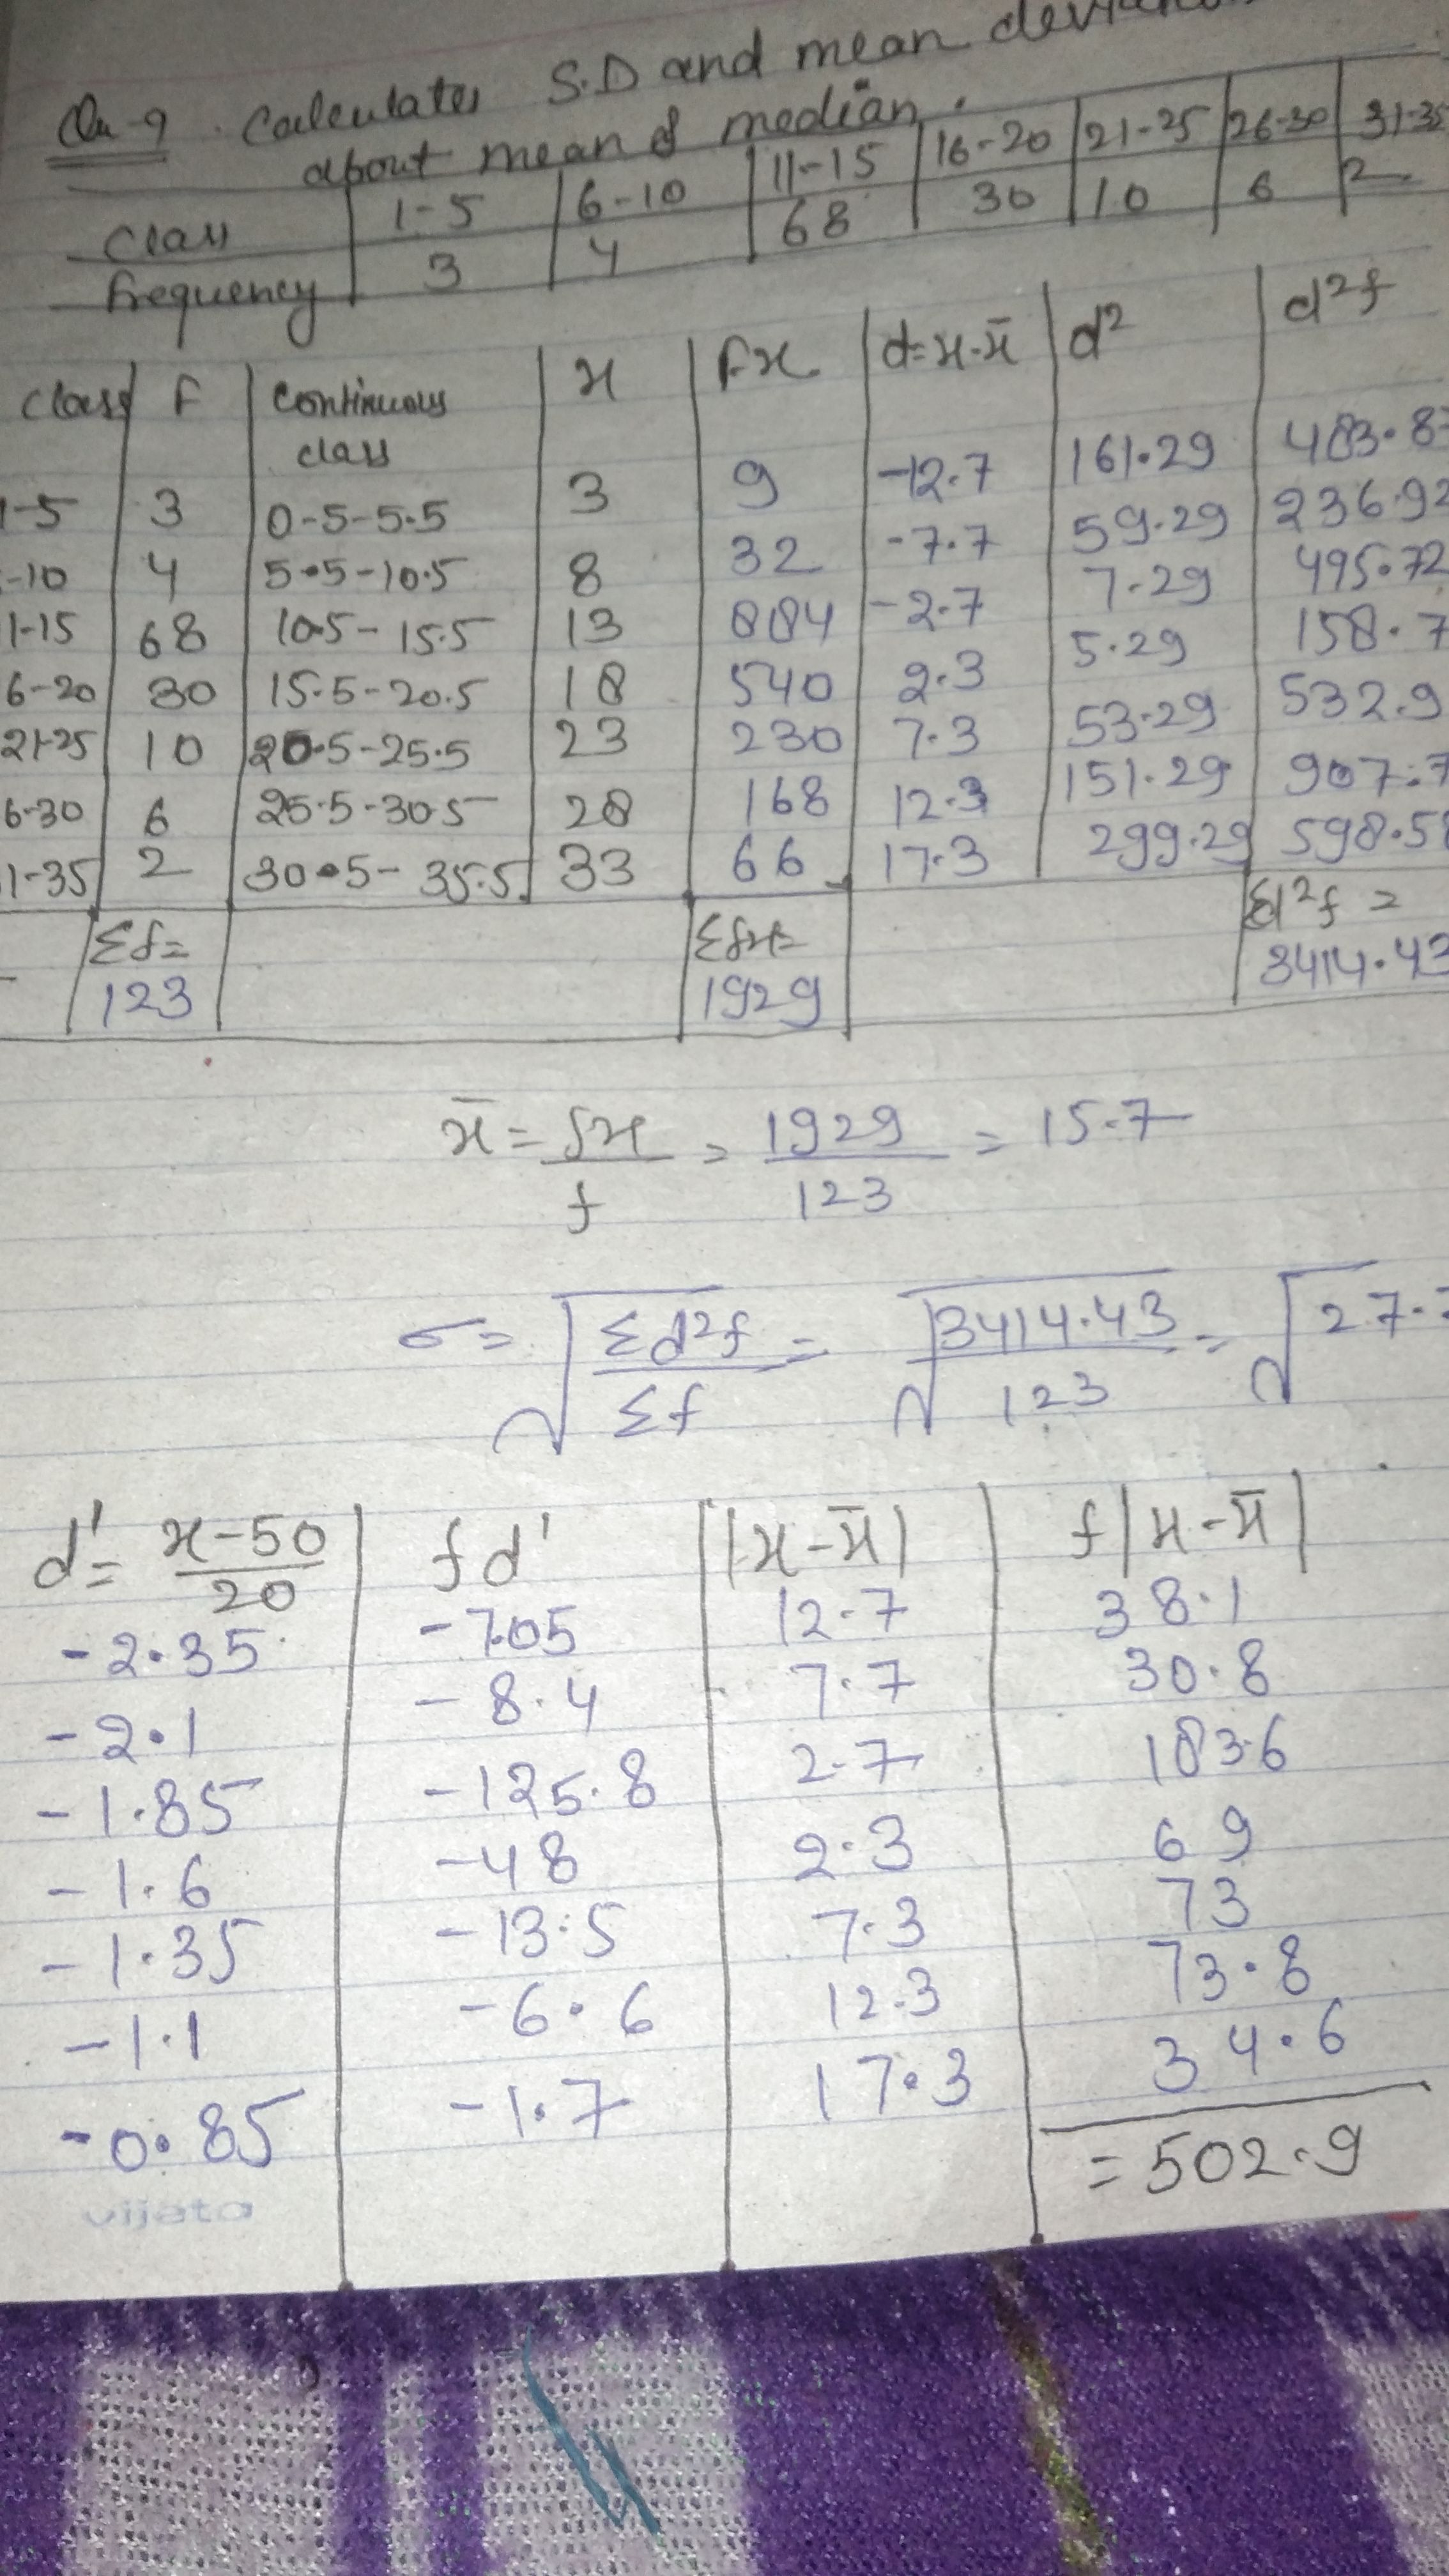 Qu-9. Calculates S.D and mean
about mean & median.
Class | 1-5 | 6-10 | 11-15 | 16-20 | 21-25 | 26-30 | 31-35
frequency | 3 | 4 | 68 | 30 | 10 | 6 | 2
class | F | continuous class | x | Fx | d=x-x̄ | d² | d²f
1-5 | 3 | 0-5-5.5 | 3 | 9 | -12.7 | 161.29 | 483.8
-10 | 4 | 5.5-10.5 | 8 | 32 | -7.7 | 59.29 | 236.92
1-15 | 68 | 10.5-15.5 | 13 | 884 | -2.7 | 7.29 | 495.72
6-20 | 30 | 15.5-20.5 | 18 | 540 | 2.3 | 5.29 | 158.7
21-25 | 10 | 20.5-25.5 | 23 | 230 | 7.3 | 53.29 | 532.9
6-30 | 6 | 25.5-30.5 | 28 | 168 | 12.3 | 151.29 | 907.7
1-35 | 2 | 30.5-35.5 | 33 | 66 | 17.3 | 299.29 | 598.58
Σf= 123 | Σfx= 1929 | Σd²f = 3414.43
x̄ = fx/f = 1929/123 = 15.7
σ = √Σd²f/Σf = √3414.43/123 = √27.7
d' = x-50/20 | fd' | |x-x̄| | f|x-x̄|
-2.35 | -7.05 | 12.7 | 38.1
-2.1 | -8.4 | 7.7 | 30.8
-1.85 | -125.8 | 2.7 | 183.6
-1.6 | -48 | 2.3 | 69
-1.35 | -13.5 | 7.3 | 73
-1.1 | -6.6 | 12.3 | 73.8
-0.85 | -1.7 | 17.3 | 34.6
= 502.9
vijata